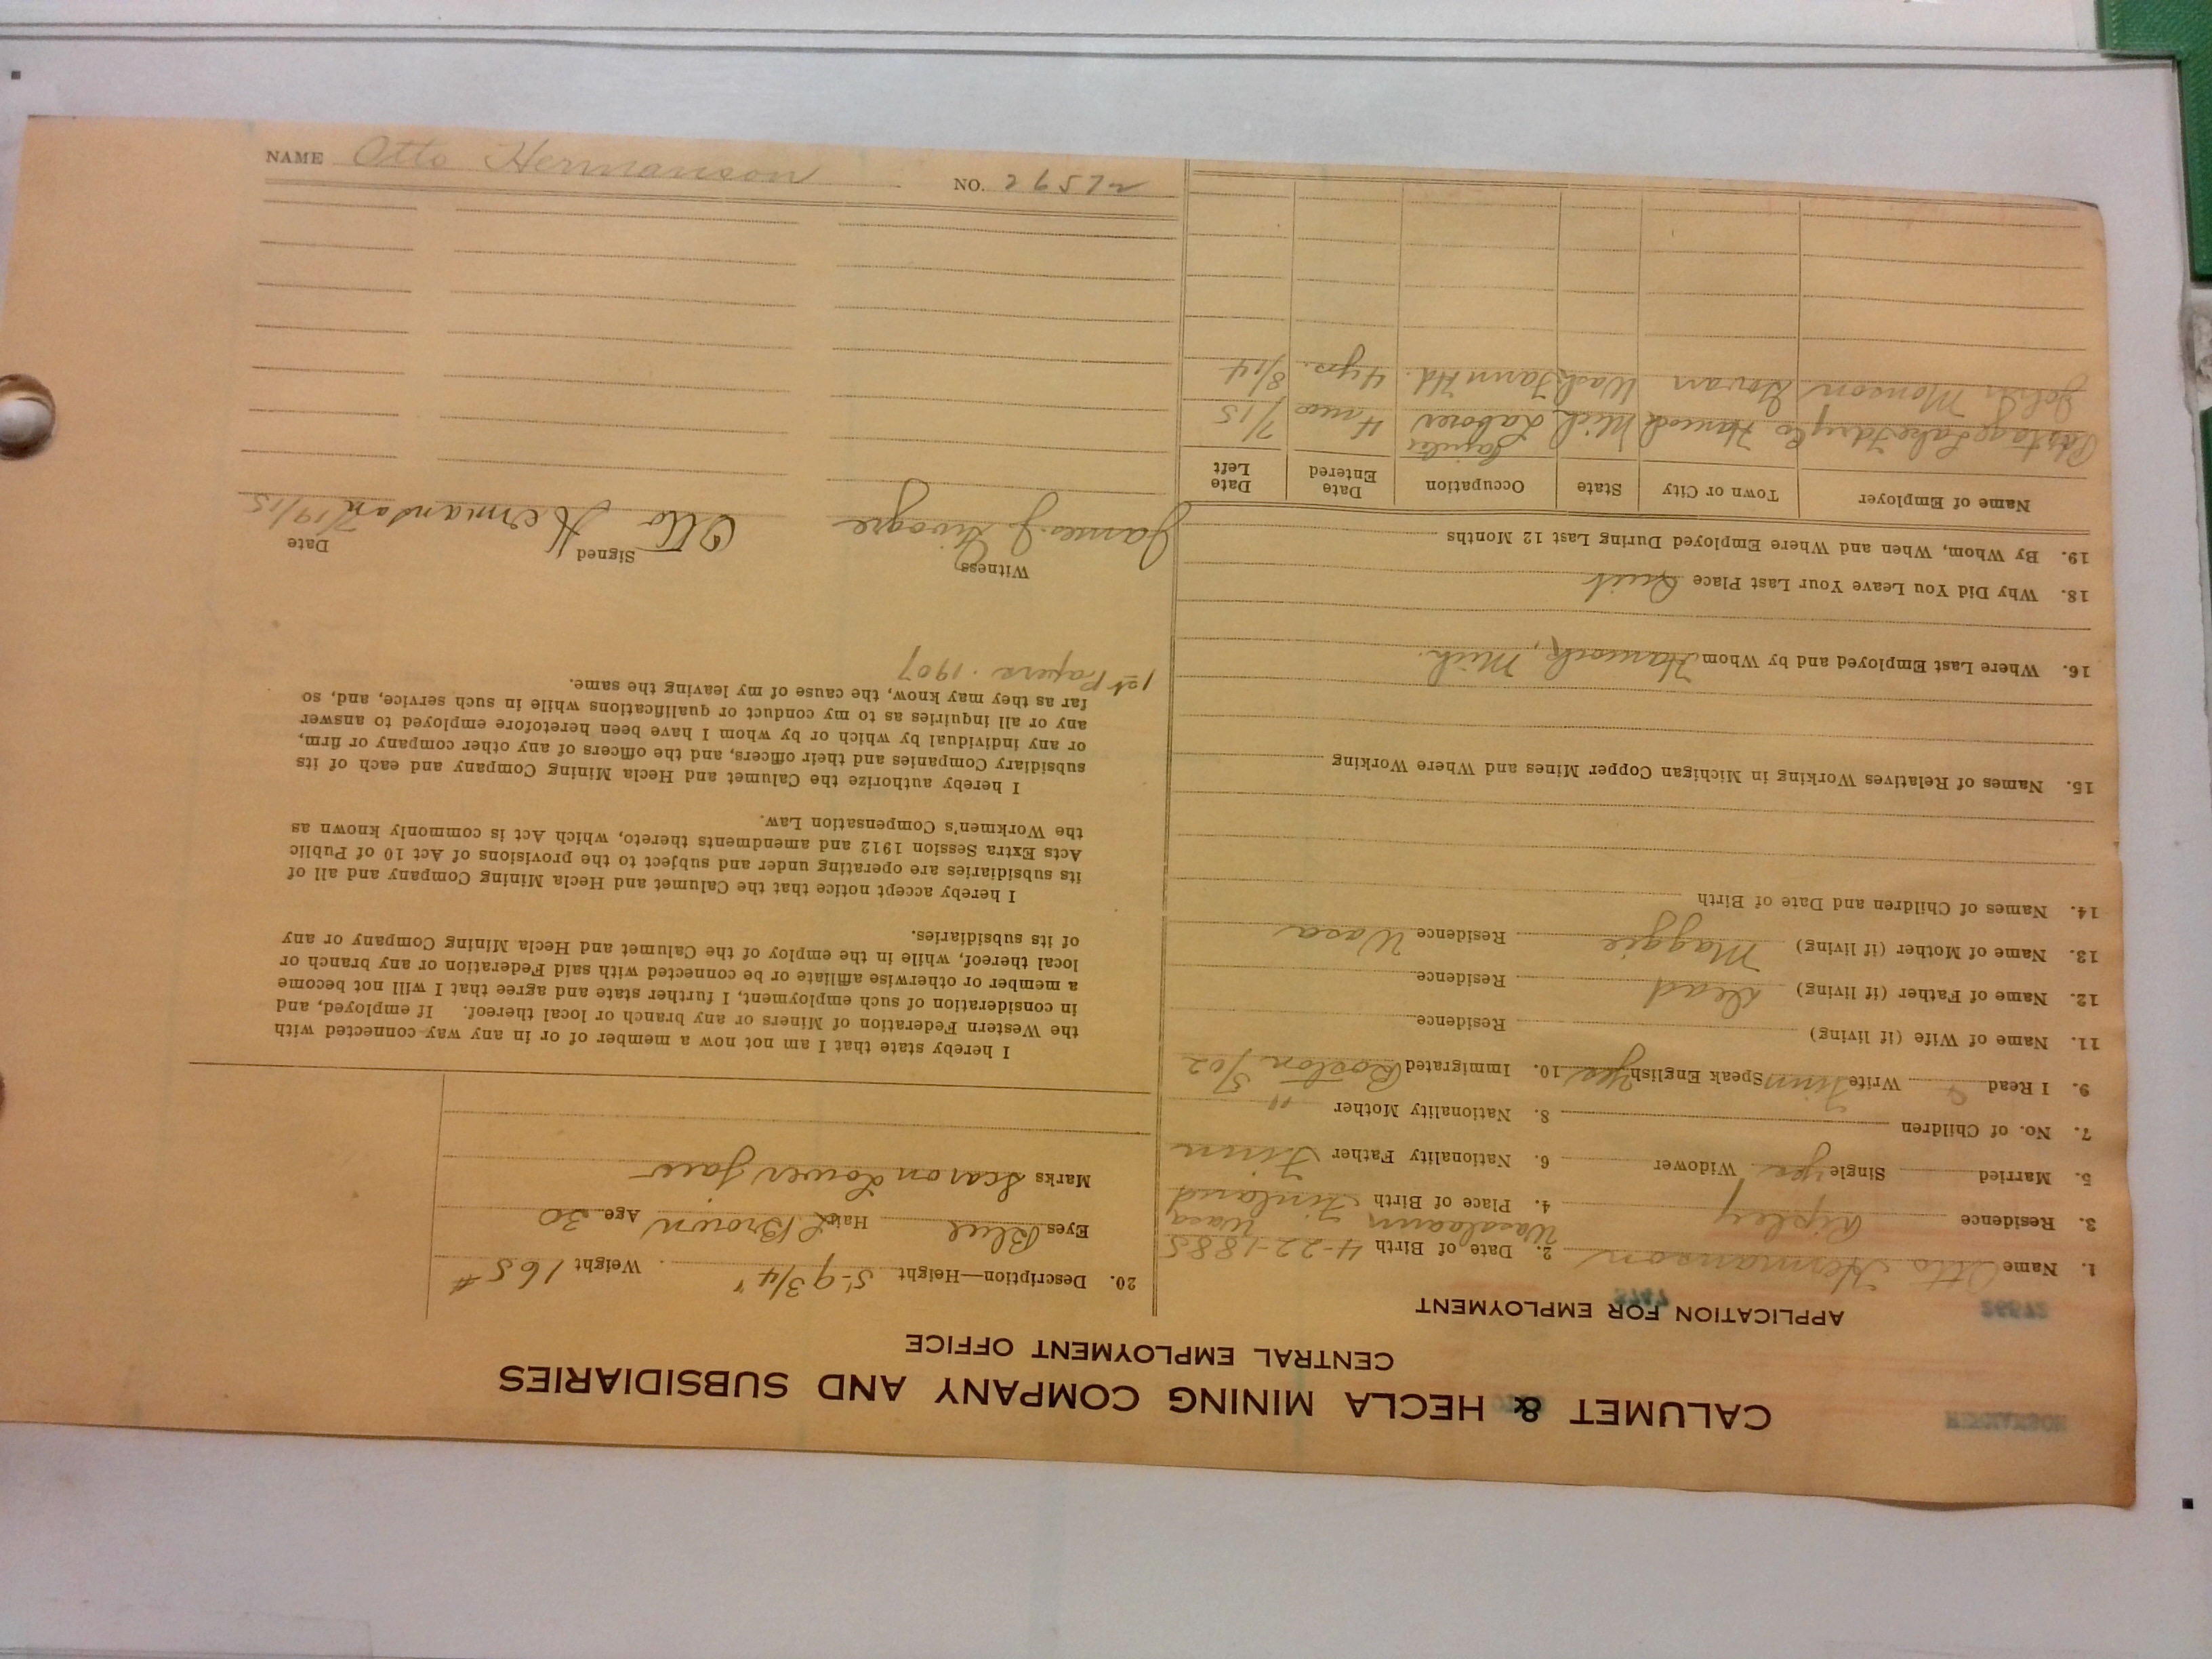 CALUMET & HECLA MINING COMPANY AND SUBSIDIARIES
CENTRAL EMPLOYMENT OFFICE
APPLICATION FOR EMPLOYMENT
1. Name Otto Hermanson 2. Date of Birth 4-22-1885
3. Residence Ripley 4. Place of Birth Finland Wasa
5. Married Single yes Widower 6. Nationality Father Finn
7. No. of Children 8. Nationality Mother "
9. I Read Write Finn Speak English yes 10. Immigrated Boston 5/02
11. Name of Wife (if living) Residence
12. Name of Father (if living) Dead Residence
13. Name of Mother (if living) Maggie Residence Wasa
14. Names of Children and Date of Birth
15. Names of Relatives Working in Michigan Copper Mines and Where Working
16. Where Last Employed and by Whom Hancock, Mich.
18. Why Did You Leave Your Last Place Quit
19. By Whom, When and Where Employed During Last 12 Months
Name of Employer Town or City State Occupation Date Entered Date Left
Portage Lake Fdry Co Hancock Mich Laborer 4 mos 7/15
John Monson Wash Farm Hd. 4 yrs. 8/14
20. Description—Height 5-9 3/4" Weight 165 #
Eyes Blue Hair L Brown Age 30
Marks Scar on Lower Jaw
I hereby state that I am not now a member of or in any way connected with
the Western Federation of Miners or any branch or local thereof. If employed, and
in consideration of such employment, I further state and agree that I will not become
a member or otherwise affiliate or be connected with said Federation or any branch or
local thereof, while in the employ of the Calumet and Hecla Mining Company or any
of its subsidiaries.
I hereby accept notice that the Calumet and Hecla Mining Company and all of
its subsidiaries are operating under and subject to the provisions of Act 10 of Public
Acts Extra Session 1912 and amendments thereto, which Act is commonly known as
the Workmen's Compensation Law.
I hereby authorize the Calumet and Hecla Mining Company and each of its
subsidiary Companies and their officers, and the officers of any other company or firm,
or any individual by which or by whom I have been heretofore employed to answer
any or all inquiries as to my conduct or qualifications while in such service, and, so
far as they may know, the cause of my leaving the same.
1st Papers. 1907
Witness Signed Date
James J. Otto Hermanson 7/19/15
NAME Otto Hermanson NO. 26572